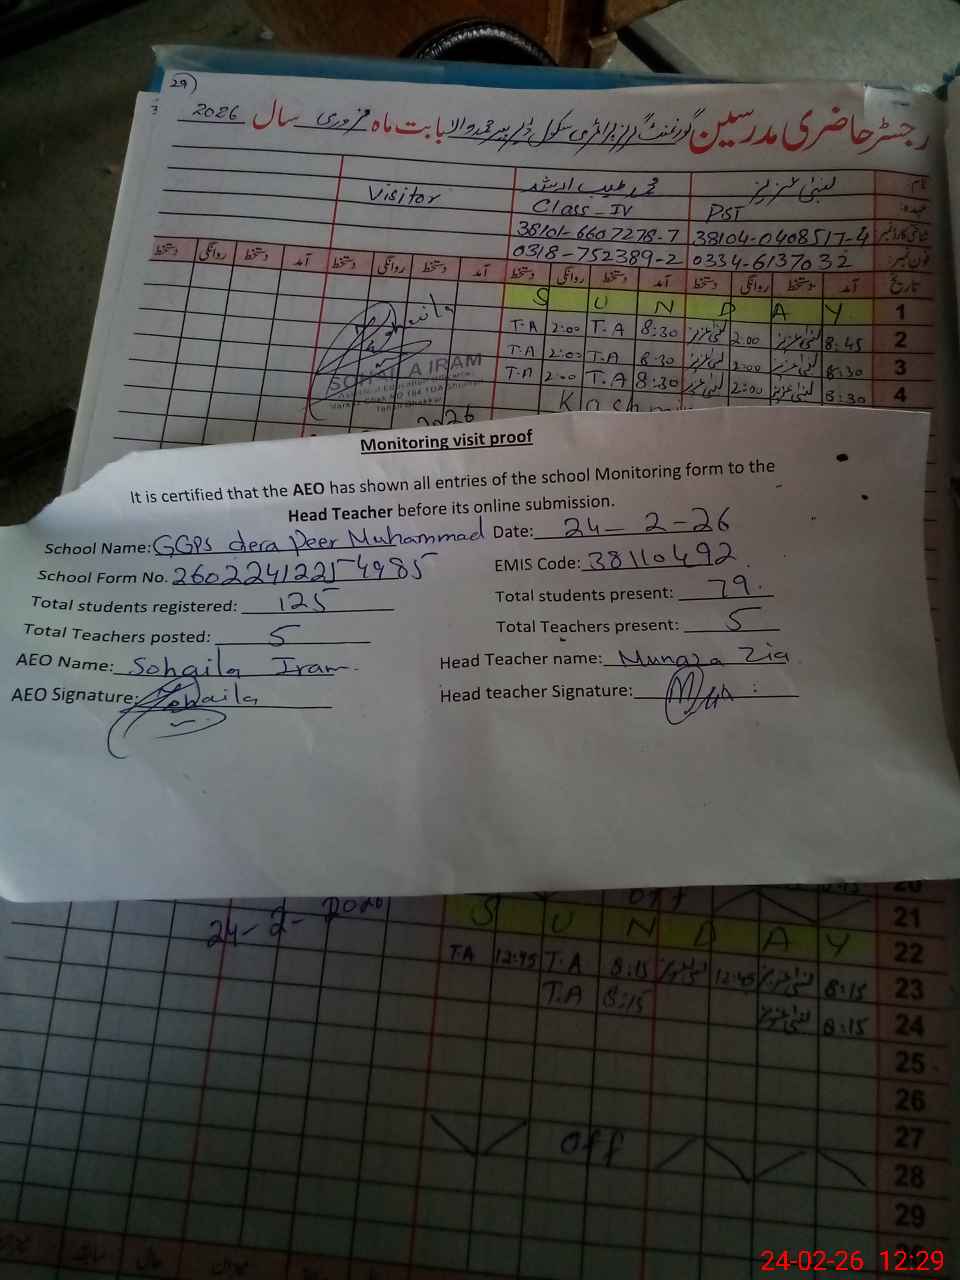 29
رجسٹر حاضری مدرسین گورنمنٹ گرلز پرائمری سکول ڈیرہ پیر محمد والا بابت ماہ فروری سال 2026
نام
لبنیٰ عزیز
محمد طیب ارشد
Visitor
عہدہ
PST
Class-IV
شناختی کارڈ نمبر
38104-0408517-4
38101-6607278-7
فون نمبر
0334-6137032
0318-752389-2
تاریخ آمد دستخط روانگی دستخط آمد دستخط روانگی دستخط آمد دستخط روانگی دستخط آمد دستخط روانگی دستخط
1 S U N D A Y
2 8:45 2:00 8:30 T.A 2:00 T.A
3 8:30 2:00 8:30 T.A 2:00 T.A
4 8:30 2:00 8:30 T.A 2:00 T.A
Sohaila
SOHAILA IRAM
2026
Monitoring visit proof
It is certified that the AEO has shown all entries of the school Monitoring form to the
Head Teacher before its online submission.
School Name: GGPS dera Peer Muhammad Date: 24-2-26
School Form No. 26022412254985 EMIS Code: 38110492
Total students registered: 125 Total students present: 79.
Total Teachers posted: 5 Total Teachers present: 5
AEO Name: Sohaila Iram. Head Teacher name: Munaza Zia
AEO Signature: Sohaila Head teacher Signature:
20
21
24-2-2026
22 S U N D A Y
23 8:15 12:45 8:15 T.A 12:45 T.A
24 8:15 8:15 T.A
25
26
27
28 Off
29
24-02-26 12:29